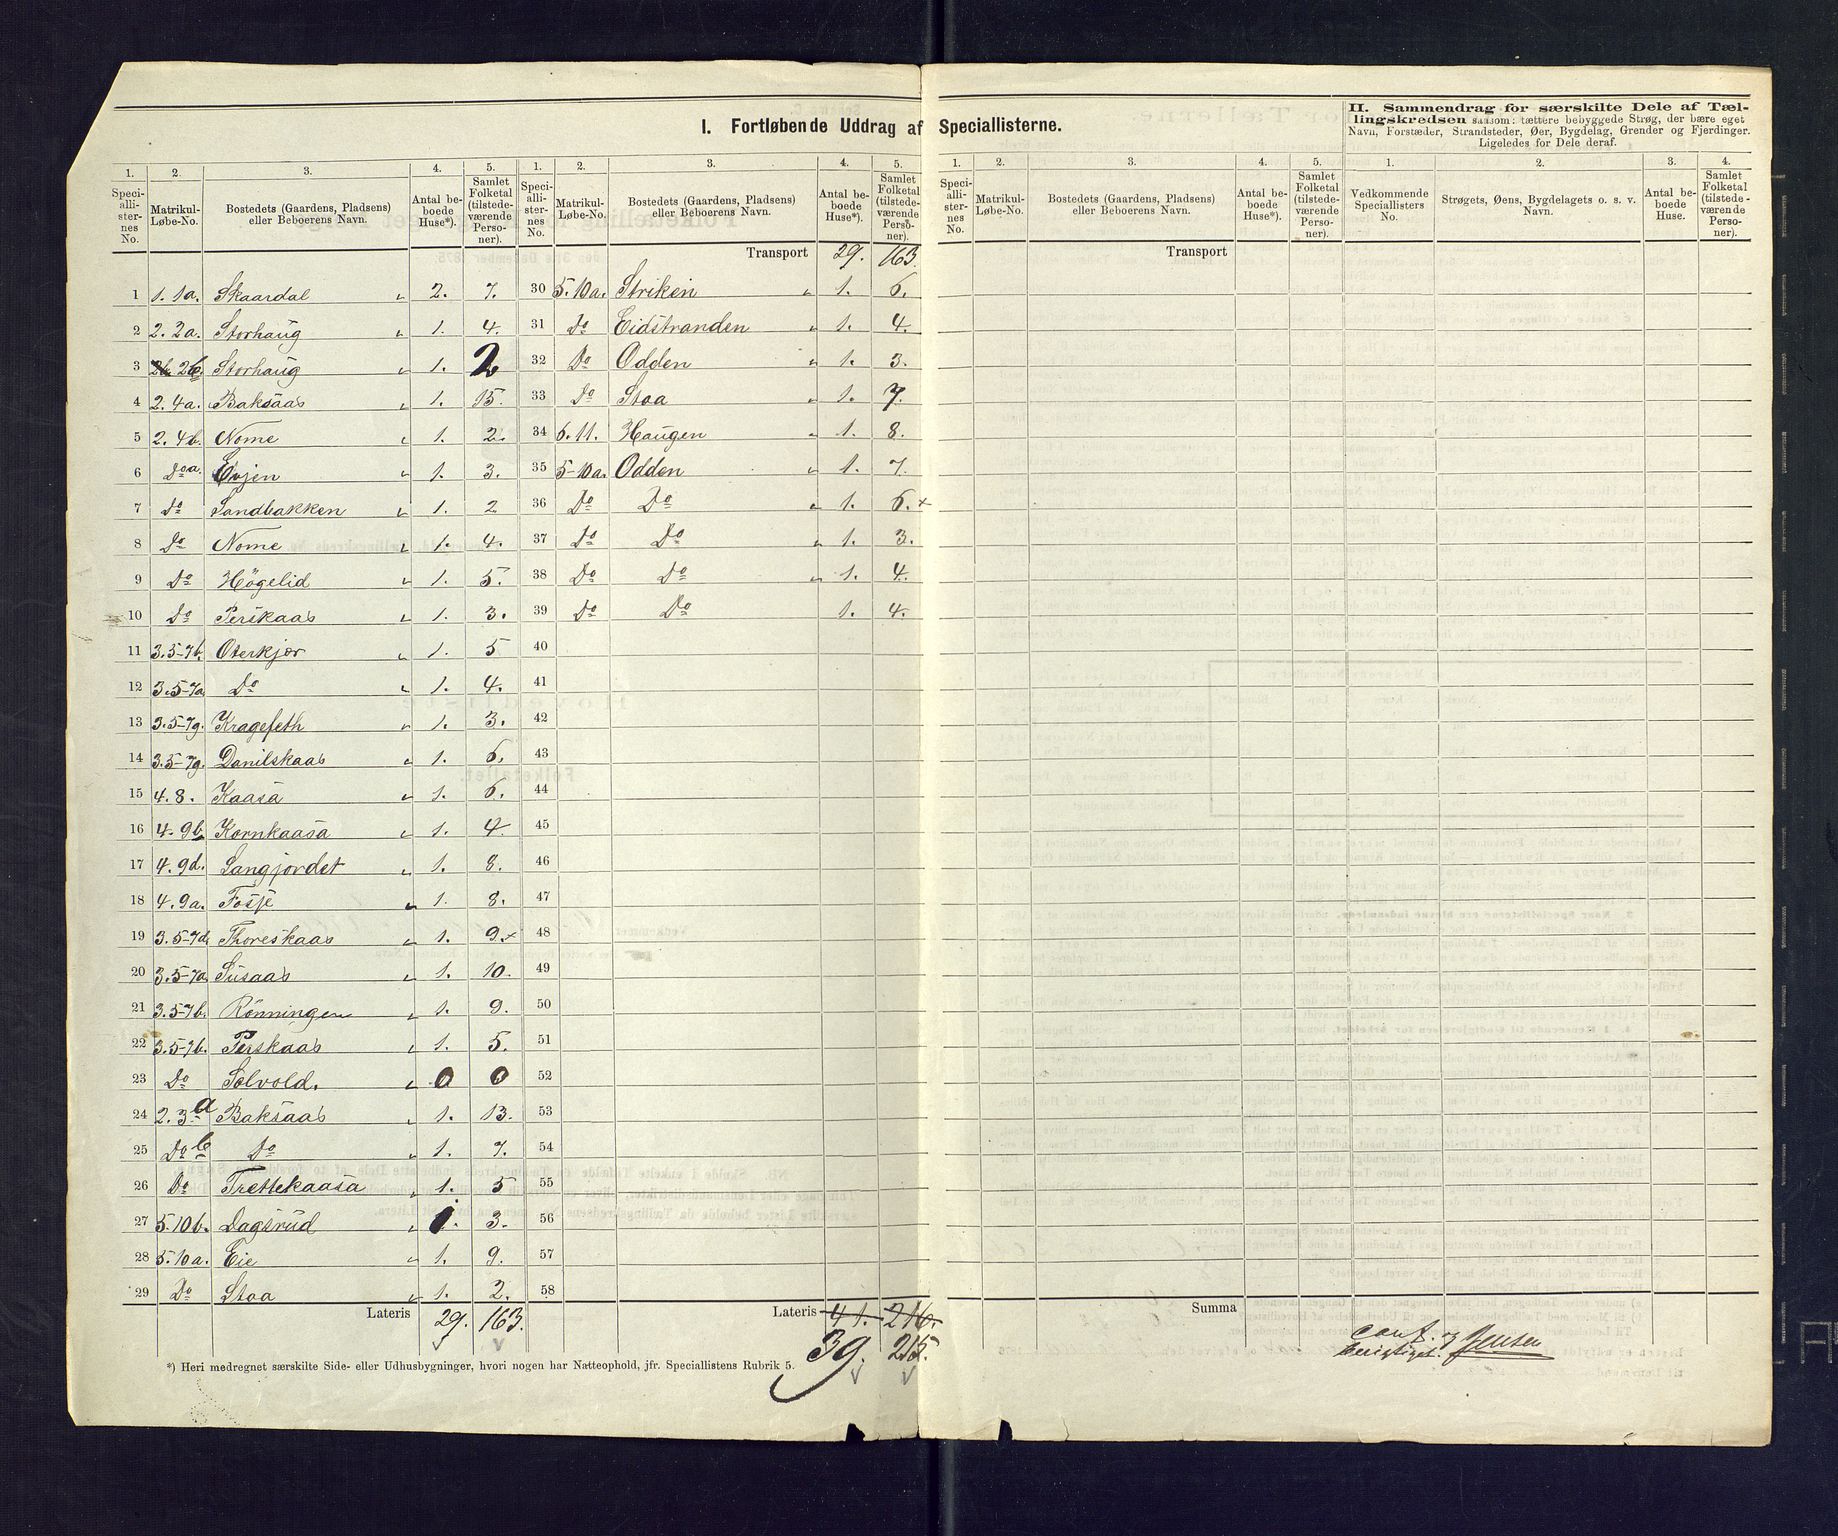 I. Fortløbende Uddrag af Speciallisterne.
II. Sammendrag for særskilte Dele af Tæl-
lingskredsen saasom: tættere bebyggede Strøg, der bære eget
Navn, Forstæder, Strandsteder, Øer, Bygdelag, Grender og Fjerdinger.
Ligeledes for Dele deraf.
1. 2. 3. 4. 5. 1. 2. 3. 4. 5. 1. 2. 3. 4. 5. 1. 2. 3. 4.
Speciallisternes No. Matrikul-Løbe-No. Bostedets (Gaardens, Pladsens) eller Beboerens Navn. Antal beboede Huse*). Samlet Folketal (tilstedeværende Personer).
Speciallisternes No. Matrikul-Løbe-No. Bostedets (Gaardens, Pladsens) eller Beboerens Navn. Antal beboede Huse*). Samlet Folketal (tilstedeværende Personer).
Speciallisternes No. Matrikul-Løbe-No. Bostedets (Gaardens, Pladsens) eller Beboerens Navn. Antal beboede Huse*). Samlet Folketal (tilstedeværende Personer).
Vedkommende Speciallisters No. Strøgets, Øens, Bygdelagets o. s. v. Navn. Antal beboede Huse. Samlet Folketal (tilstedeværende Personer).
1 1. 1a. Skaardal 2. 7.
2 2. 2a. Storhaug 1. 4.
3 2b Storhaug 1. 2
4 2. 4a. Baksaas 1. 15.
5 2. 4b. Nome 1. 2.
6 Do a. Evjen 1. 3.
7 Do Sandbakken 1. 2
8 Do Nome 1. 4.
9 Do Högelid 1. 5.
10 Do Perskaas 1. 3.
11 3. 5-7b. Oterkjær 1. 5
12 3. 5-7a Do 1. 4.
13 3. 5-7g. Kragefeth 1. 3.
14 3. 5-7g. Danilskaas 1. 6.
15 4. 8. Kaasa 1. 6.
16 4. 9b Kornkaasa 1. 4.
17 4. 9d. Langjordet 1. 8.
18 4. 9a. Fosje 1. 8.
19 3. 5-7d Thoreskaas 1. 9 x
20 3. 5-7a Susaas 1. 10.
21 3. 5-7b. Rönningen 1. 9.
22 3. 5-7b. Perskaas 1. 5.
23 Do Solvold. 0 0
24 2. 3 a Baksaas 1. 13.
25 Do b Do 1. 7.
26 Do Trettekaasa 1. 5
27 5. 10b. Dagsrud 1. 3.
28 5. 10a. Eie 1. 9.
29 Do Stoa 1. 2.
Lateris 29. 163.
Transport 29. 163.
30 5. 10a. Striken 1. 6.
31 Do Eidstranden 1. 4.
32 Do Odden 1. 3.
33 Do Stoa 1. 7.
34 6. 11. Haugen 1. 8.
35 5-10a. Odden 1. 7.
36 Do Do 1. 6. x
37 Do Do 1. 3.
38 Do Do 1. 4.
39 Do Do 1. 4.
40
41
42
43
44
45
46
47
48
49
50
51
52
53
54
55
56
57
58
Lateris 41. 216.
39. 215.
Transport
Summa
*) Heri medregnet særskilte Side- eller Udhusbygninger, hvori nogen har Natteophold, jfr. Speciallistens Rubrik 5.
conf. og
Jensen